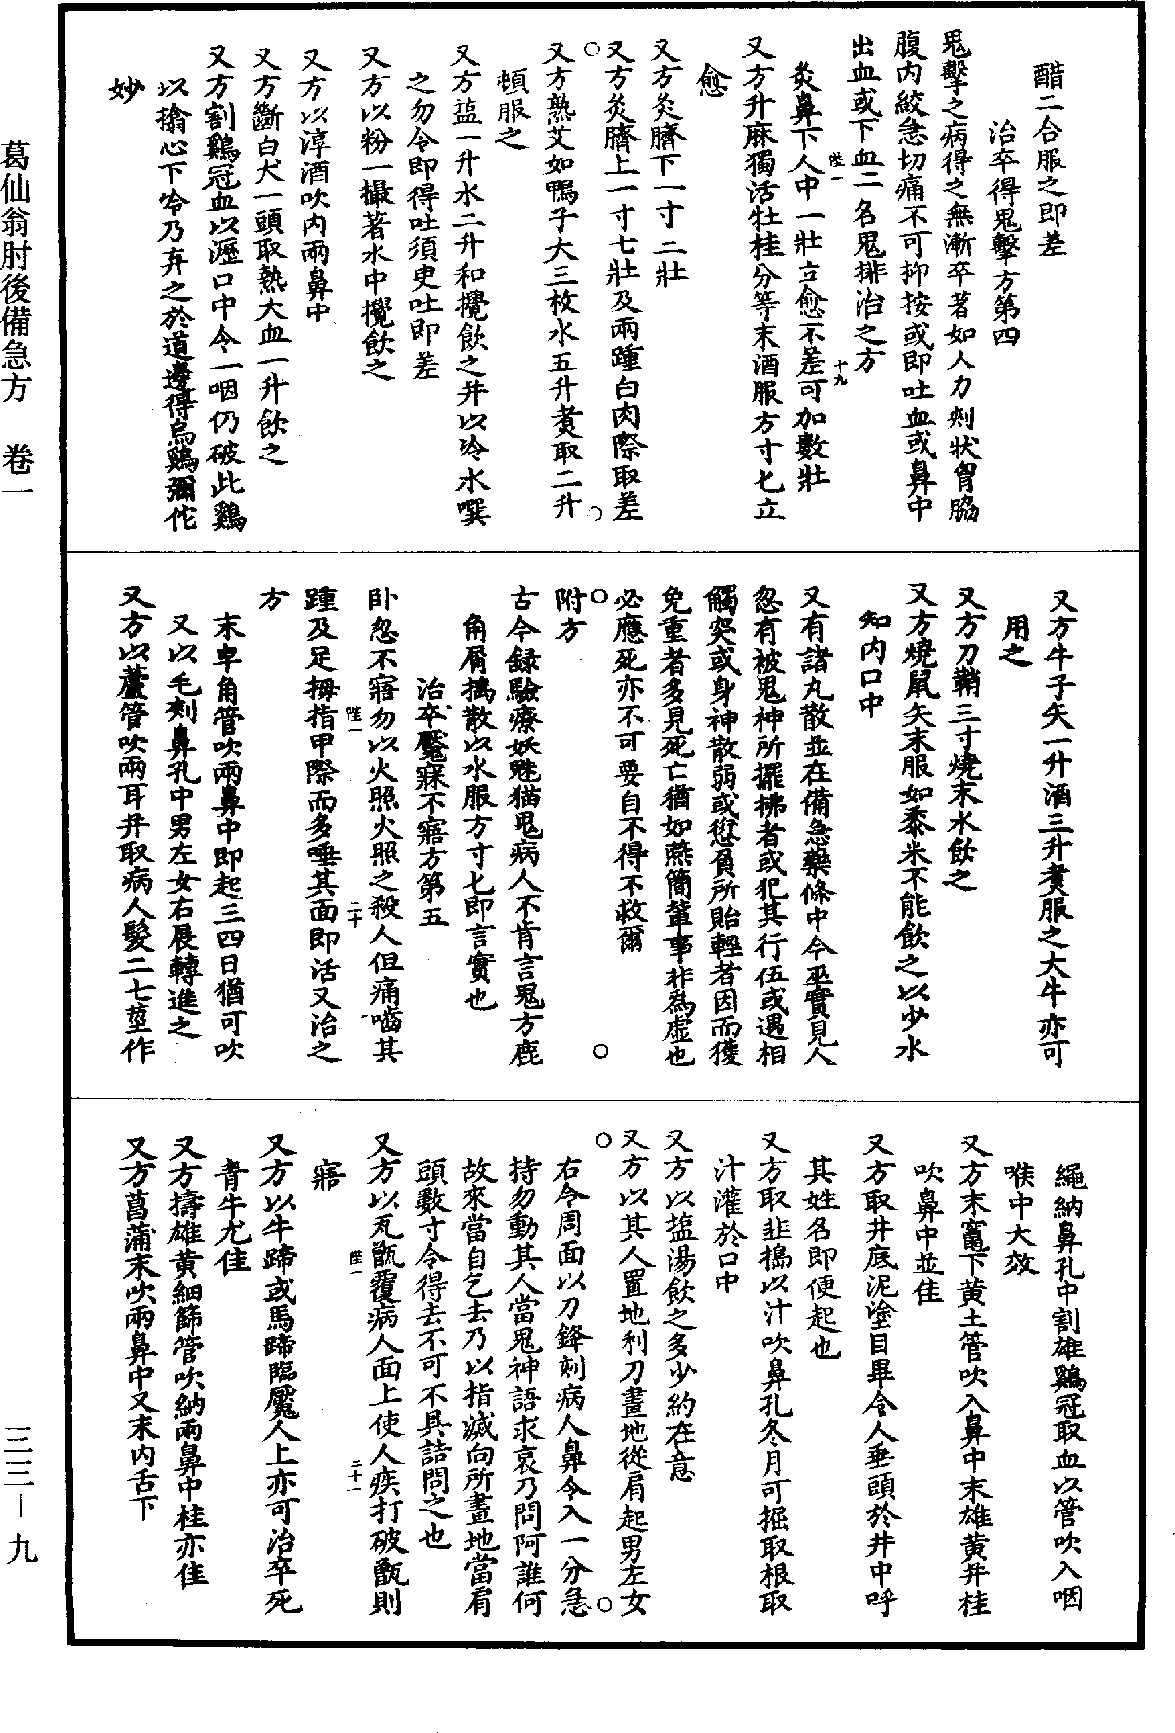 醋二合服之即差
治卒得鬼擊方第四
鬼擊之病得之無漸卒著如人力刺狀胷脇
腹内絞急切痛不可抑按或即吐血或鼻中
出血或下血一名鬼排治之方
灸鼻下人中一壯立愈不差可加數壯
陞一
十九
又方升麻獨活牡桂分等末酒服方寸匕立
愈
又方灸臍下一寸二壯
又方灸臍上一寸七壯及兩踵白肉際取差
又方熟艾如鴨子大三枚水五升煑取二升
頓服之
又方塩一升水二升和攪飲之并以冷水噀
之勿令即得吐須史吐即差
又方以粉一撮著水中攪飲之
又方以淳酒吹内兩鼻中
又方斷白犬一頭取熱犬血一升飲之
又方割鷄冠血以瀝口中令一咽仍破此鷄
以搨心下冷乃弃之於道邊得烏鷄彌佗
妙
又方牛子矢一升酒三升煑服之大牛亦可
用之
又方刀鞘三寸燒末水飲之
又方燒鼠矢末服如黍米不能飲之以少水
和内口中
又有諸丸散並在備急藥條中今巫實見人
忽有被鬼神所擺拂者或犯其行伍或遇相
觸突或身神散弱或愆負所貽輕者因而獲
免重者多見死亡猶如燕簡輩事非爲虛也
必應死亦不可要自不得不救爾
附方
古今録驗療妖魅猫鬼病人不肯言鬼方鹿
角屑擣散以水服方寸匕即言實也
治卒魘寐不寤方第五
卧忽不寤勿以火照火照之殺人但痛嚙其
踵及足拇指甲際而多唾其面即活又治之
陞一
二十
方
末皁角管吹兩鼻中即起三四日猶可吹
又以毛刺鼻孔中男左女右展轉進之
又方以蘆管吹兩耳并取病人髮二七莖作
繩納鼻孔中割雄鷄冠取血以管吹入咽
喉中大效
又方末竈下黄土管吹入鼻中末雄黄并桂
吹鼻中並佳
又方取井底泥塗目畢令人垂頭於井中呼
其姓名即便起也
又方取韭搗以汁吹鼻孔冬月可掘取根取
汁灌於口中
又方以塩湯飲之多少約在意
又方以其人置地利刀畫地從肩起男左女
右令周面以刀鋒刺病人鼻令入一分急
持勿動其人當鬼神語求哀乃問阿誰何
故來當自乞去乃以指滅向所畫地當肩
頭數寸令得去不可不具詰問之也
又方以瓦甑覆病人面上使人疾打破甑則
陞一
二十一
寤
又方以牛蹄或馬蹄臨魘人上亦可治卒死
青牛尤佳
又方擣雄黄細篩管吹納兩鼻中桂亦佳
又方菖蒲末吹兩鼻中又末内舌下
葛仙翁肘後備急方 卷一
三三—九